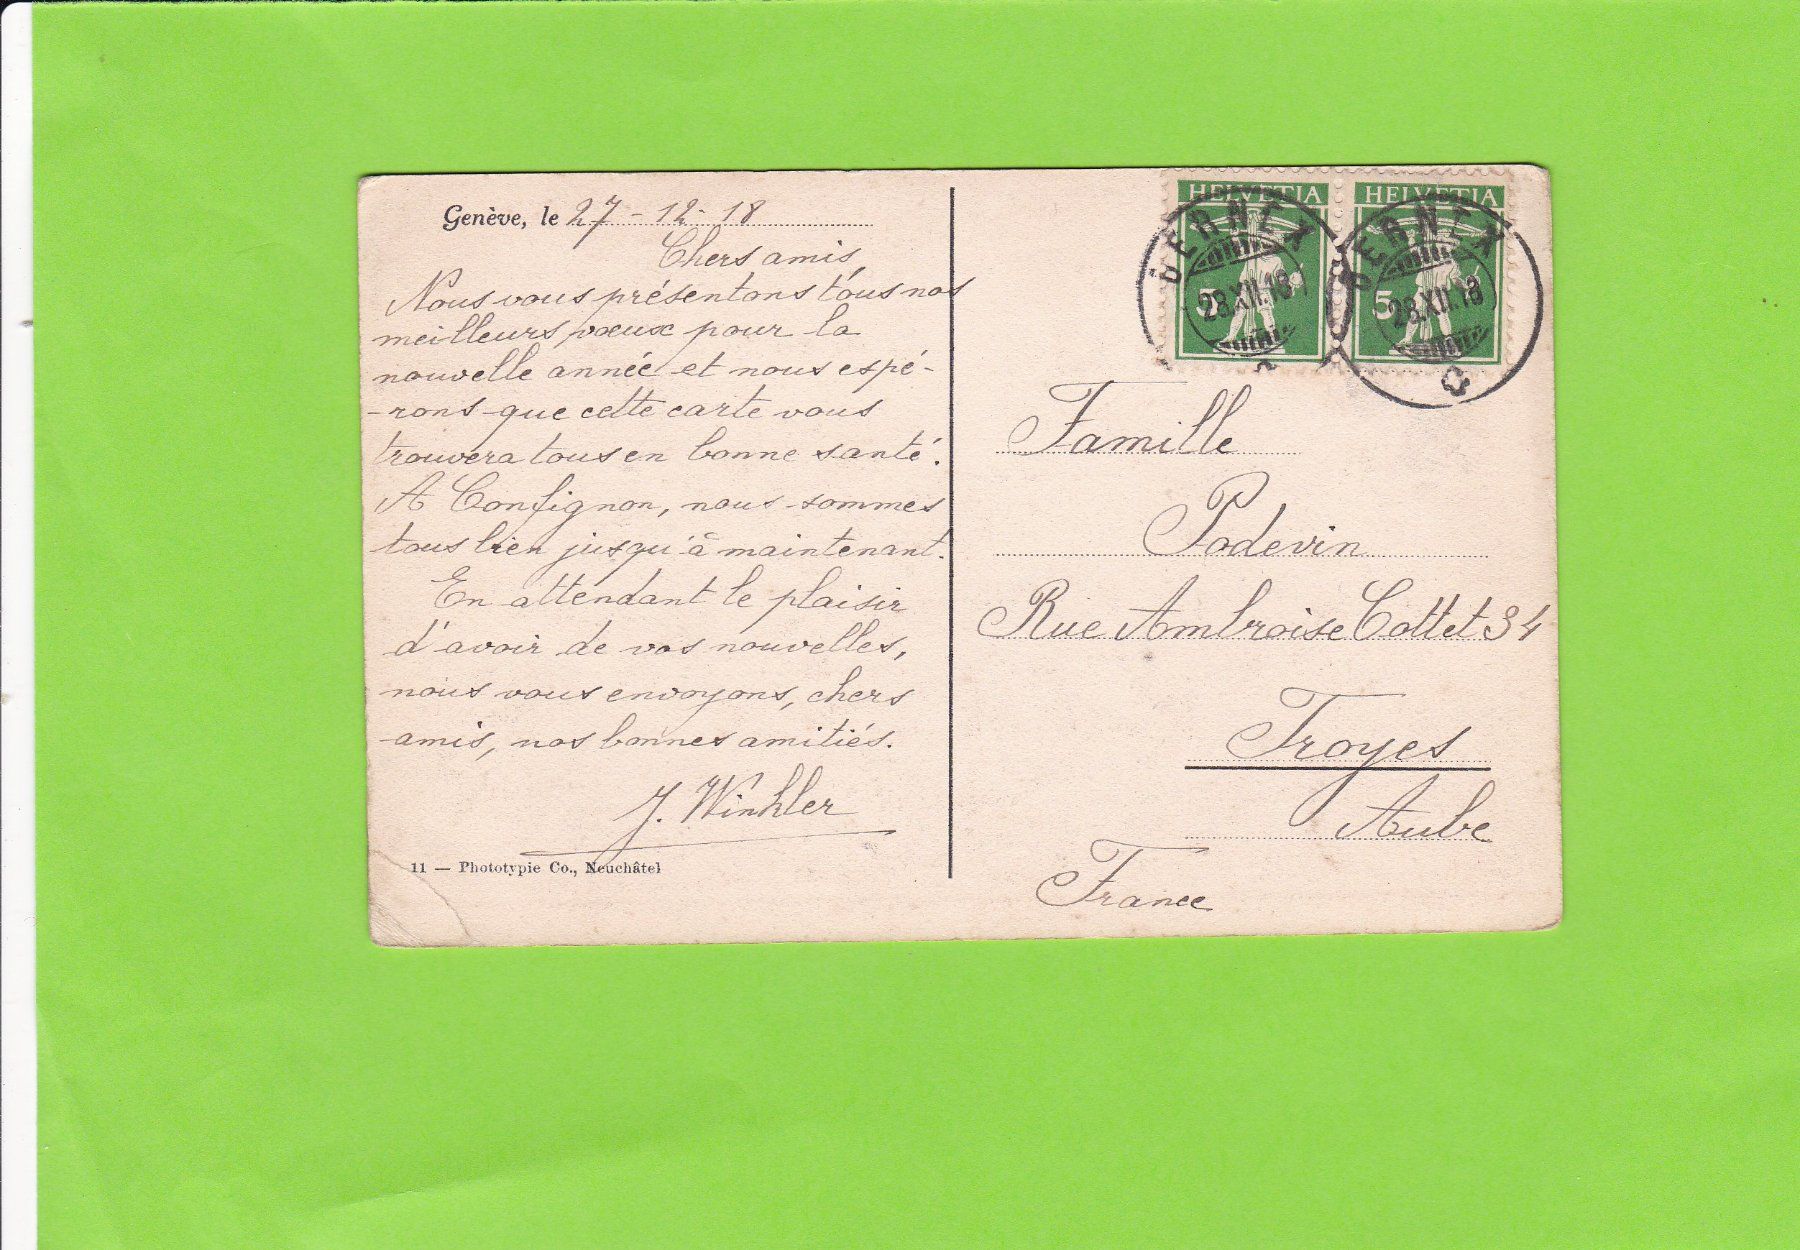 Genève, le 27-12-18
Chers amis
Nous vous présentons tous nos
meilleurs vœux pour la
nouvelle année et nous espé-
-rons que cette carte vous
trouvera tous en bonne santé.
A Confignon, nous sommes
tous bien jusqu'à maintenant.
En attendant le plaisir
d'avoir de vos nouvelles,
nous vous envoyons, chers
amis, nos bonnes amitiés.
J. Winkler
11 — Phototypie Co., Neuchâtel
HELVETIA HELVETIA
BERNEX BERNEX
5 5
28.XII.18 28.XII.18
Famille
Podevin
Rue Ambroise Cottet 34
Troyes
Aube
France